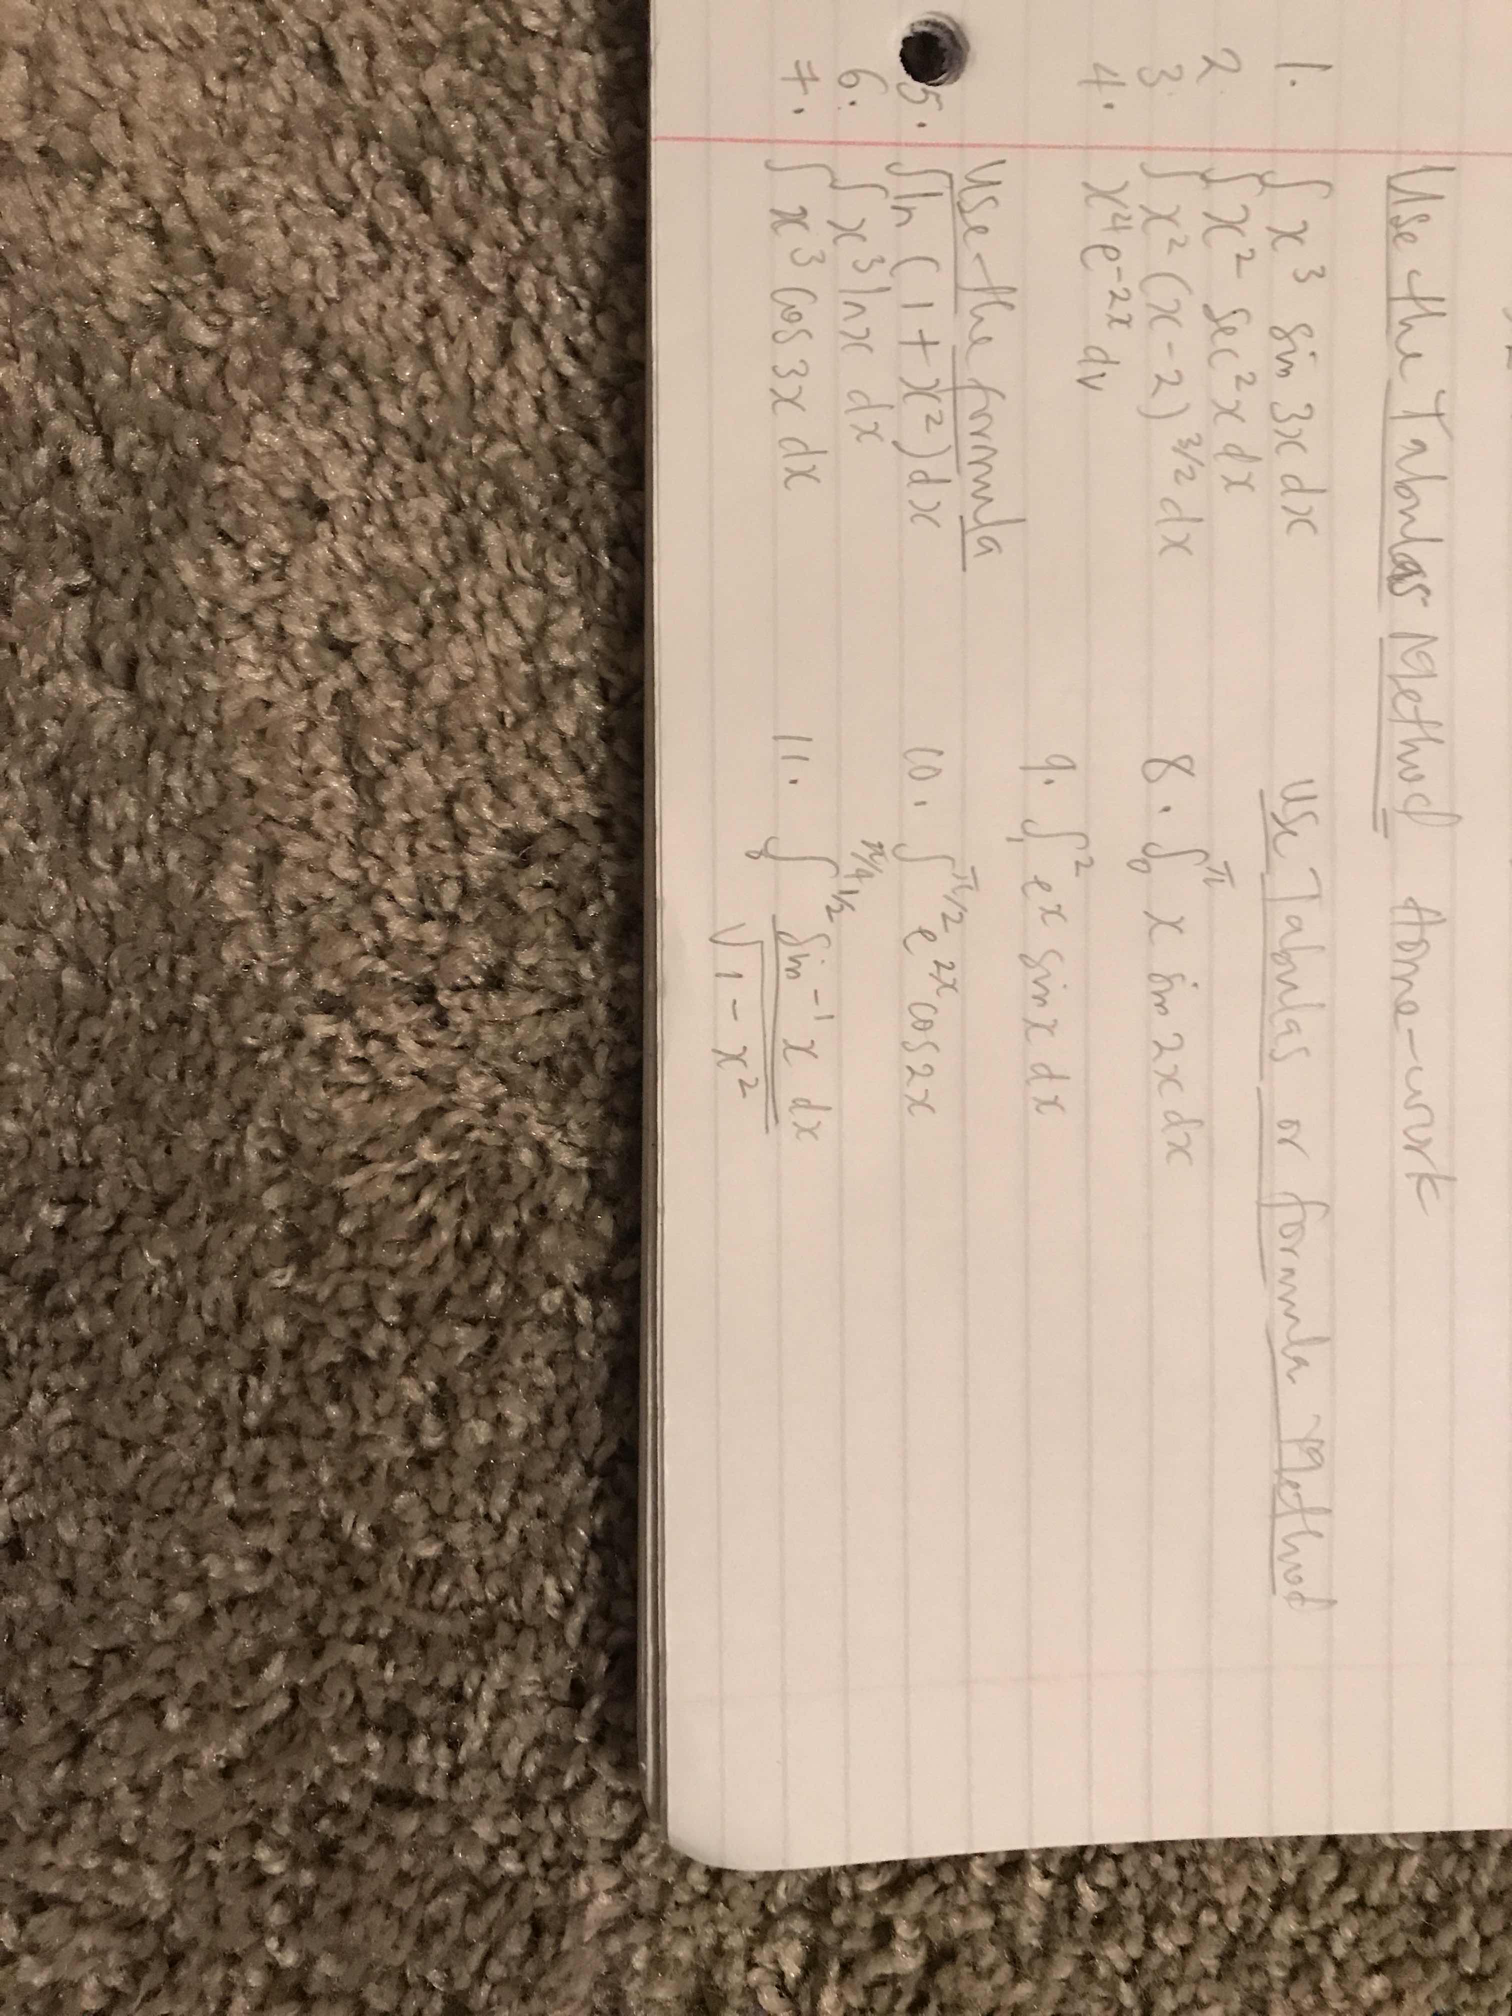 Use the Tabular Method Home-work
1. ∫ x³ sin 3x dx
2 ∫ x² sec² x dx
3. ∫ x² (x-2)^3/2 dx
4. x⁴ e^-2x dv
Use the formula
5. ∫ ln (1 + x²) dx
6. ∫ x³ ln x dx
7. ∫ x³ cos 3x dx
Use Tabular or formula Method
8. ∫₀^π x sin 2x dx
9. ∫₁² e^x sin x dx
10. ∫_π/4^π/2 e^2x cos 2x
11. ∫₀^1/2 sin⁻¹ x dx
√1 - x²